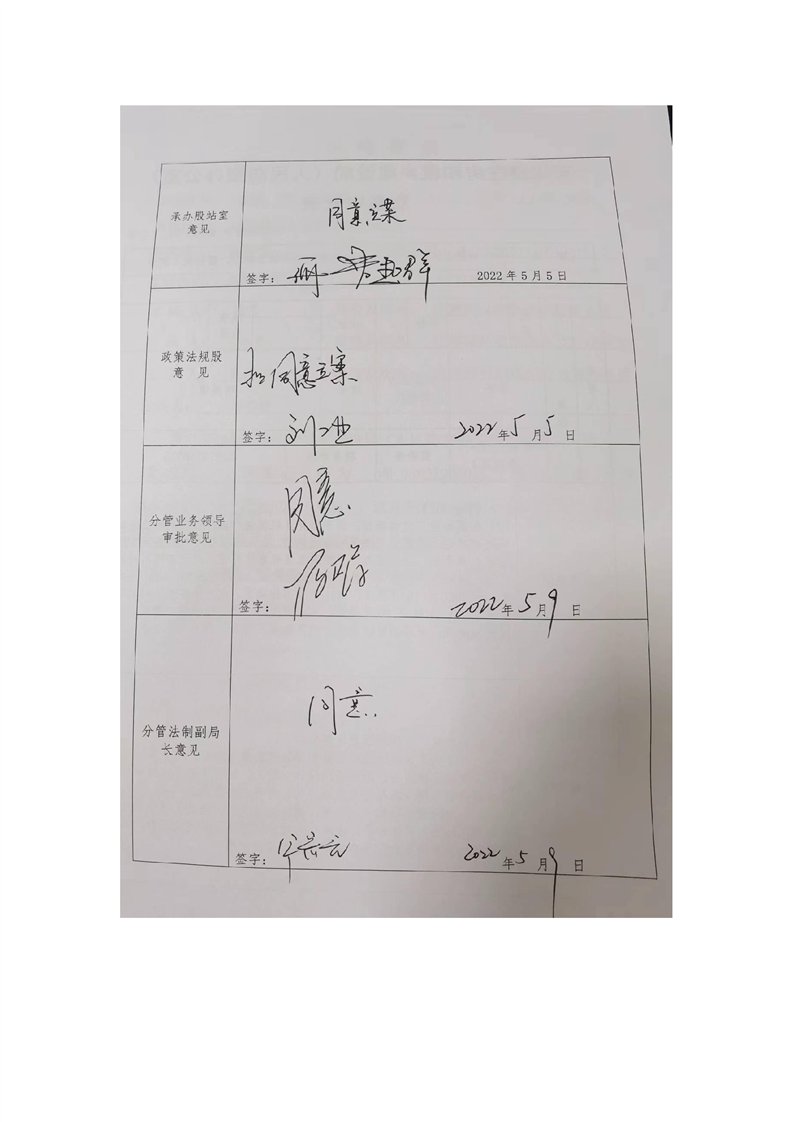 承办股站室
意见
同意立案
签字：
2022年5月5日
政策法规股
意 见
拟同意立案
签字：
2022年5月5日
分管业务领导
审批意见
同意
签字：
2022年5月9日
分管法制副局
长意见
同意
签字：
2022年5月9日